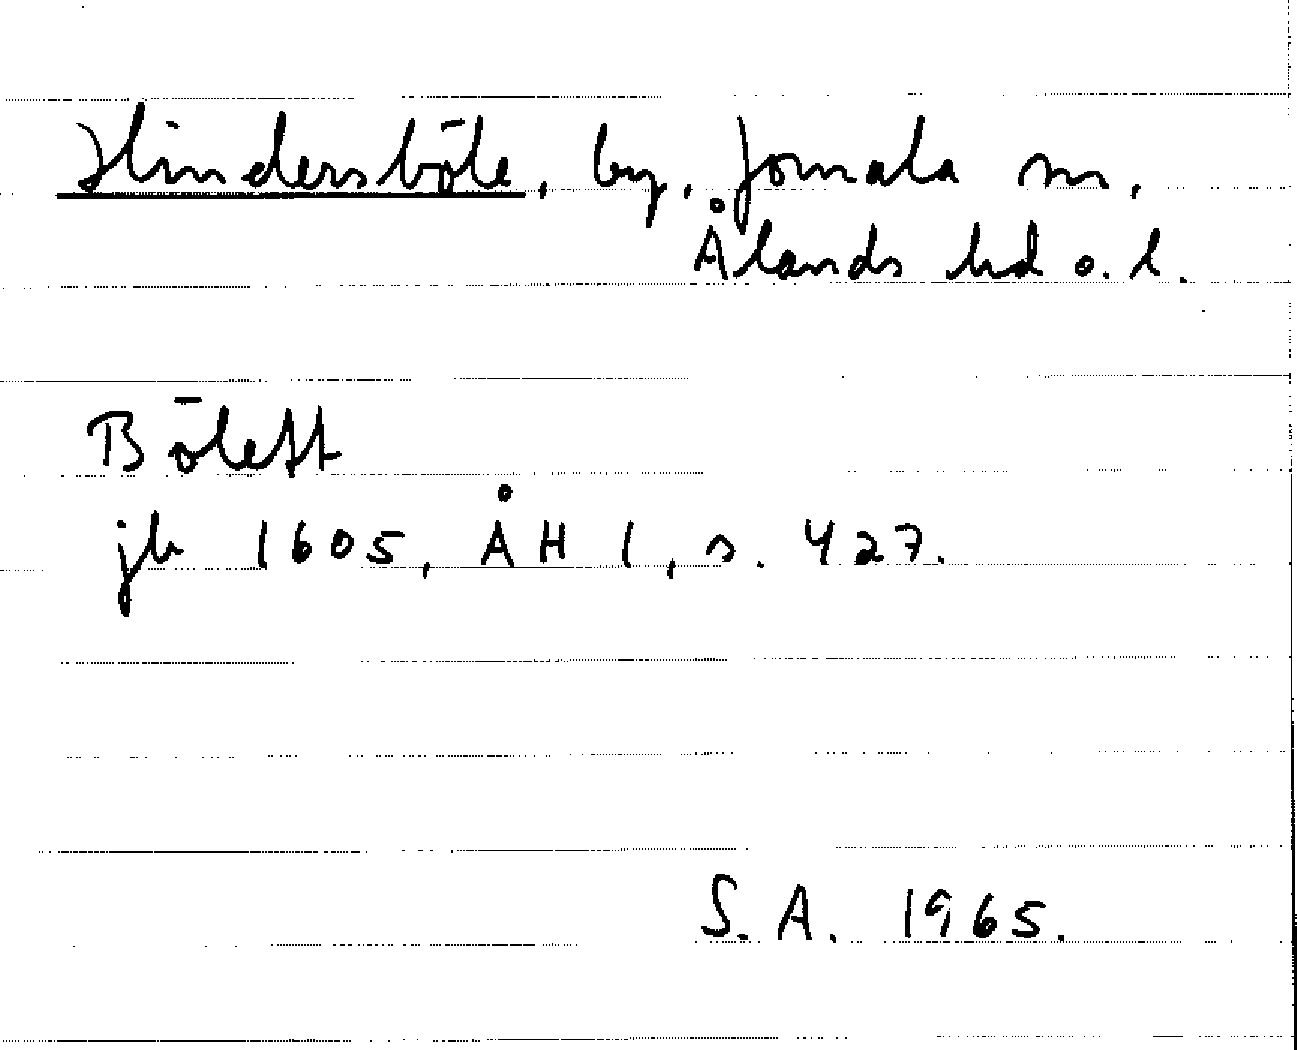 Hindersböle, by, Jomala sn,
Ålands hd o. l.
Bölestt
jb 1605, ÅH 1, s. 427.
S. A. 1965.